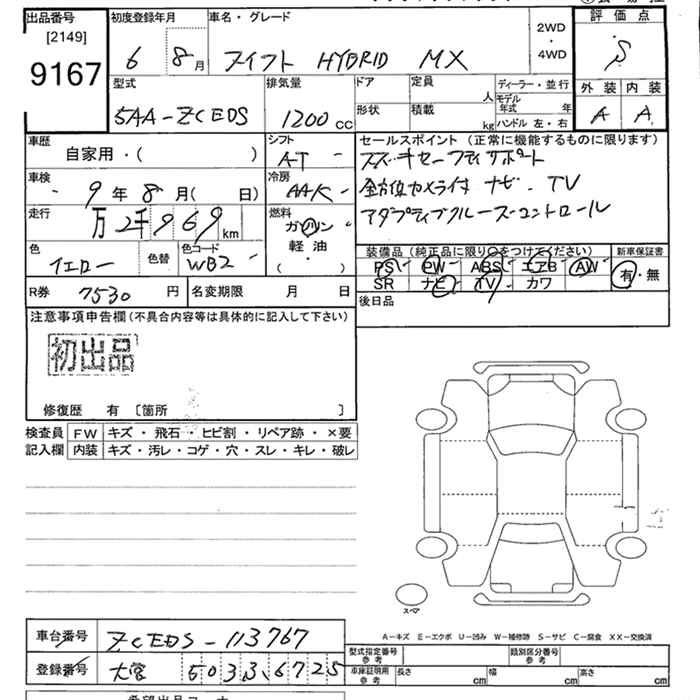 出品番号 初度登録年月 車名・グレード 評価点
[2149] 2WD
9167 6 8月 スイフト HYBRID MX 4WD S
型式 排気量 ドア 定員 ディーラー・並行 外装 内装
5AA-ZCEDS 1200cc 形状 積載 人 モデル年式 年 A A
kg ハンドル 左・右
車歴 シフト セールスポイント (正常に機能するものに限ります)
自家用・( ) AT スズキセーフティサポート
車検 冷房 全方位カメラ付 ナビ. TV
9年8月( 日) AAC アダプティブクルーズコントロール
走行 燃料
万2千969km ガソリン
軽油
( )
色 色替 色コード 装備品(純正品に限り○をつけてください) 新車保証書
イエロー WB2 PS PW ABS エアB AW 有・無
SR ナビ TV カワ
R券 7530円 名変期限 月 日 後日品
注意事項申告欄(不具合内容等は具体的に記入して下さい)
初出品
修復歴 有 〔箇所 〕
検査員 FW キズ・飛石・ヒビ割・リペア跡・×要
記入欄 内装 キズ・汚レ・コゲ・穴・スレ・キレ・破レ
スペア
A-キズ E-エクボ U-凹み W-補修跡 S-サビ C-腐食 XX-交換済
車台番号 ZCEDS-113767 型式指定番号 参考 類別区分番号 参考
登録番号 大宮 503 3 6725 車庫証明用 参考 長さ cm 幅 cm 高さ cm
希望出品コーナー